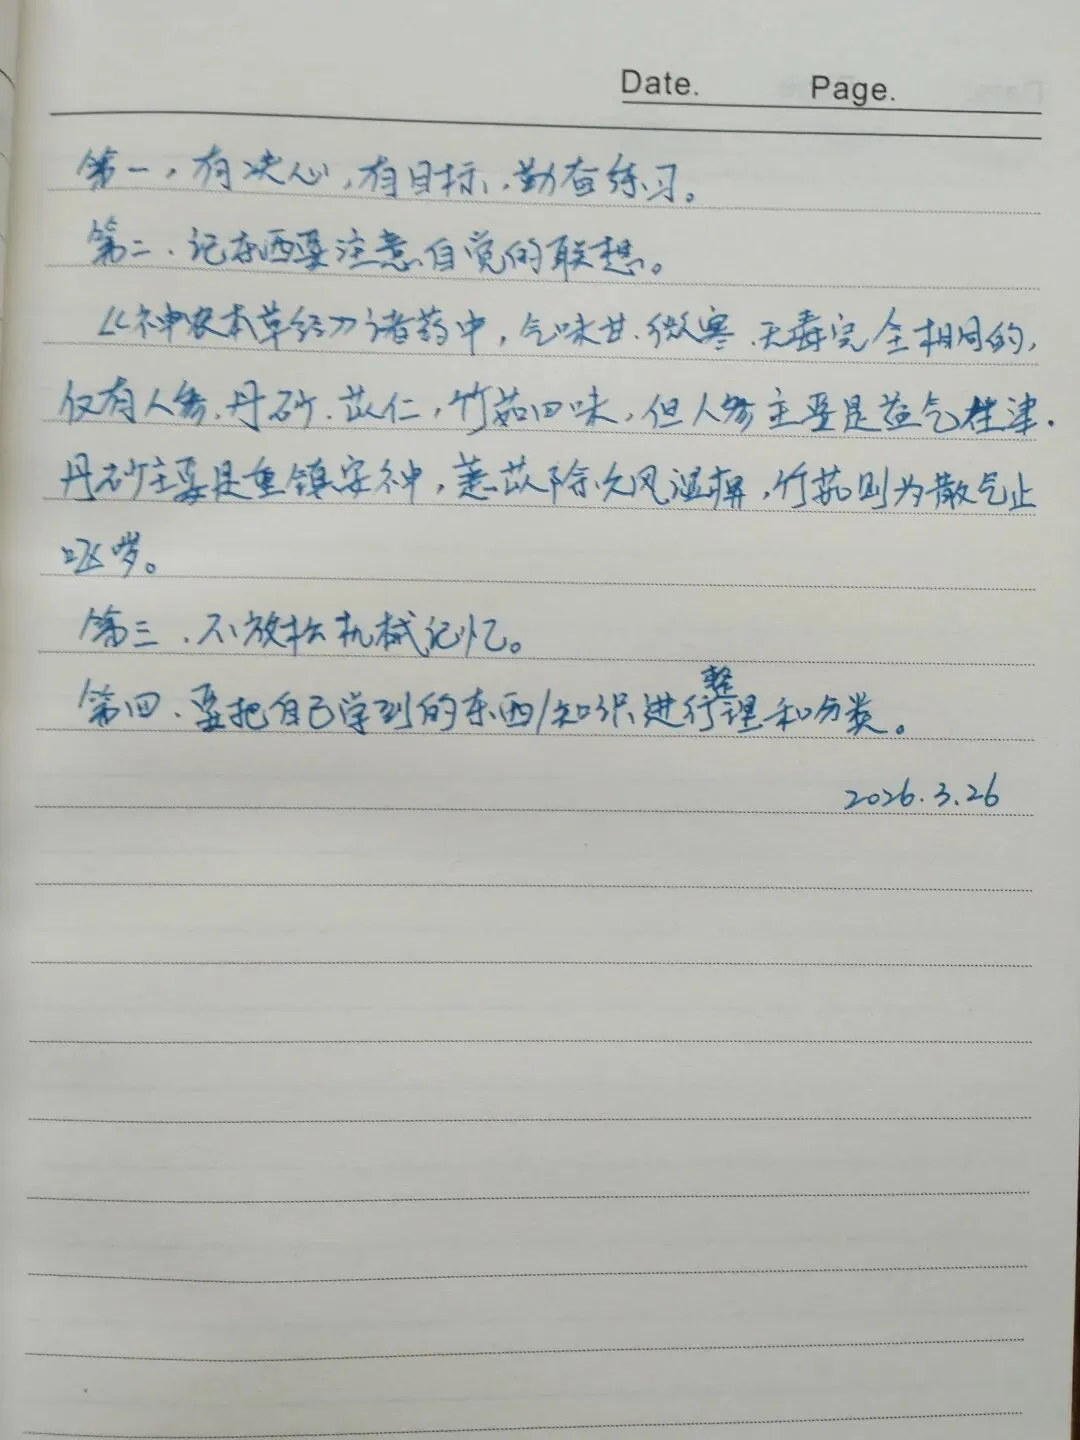 Date. Page.
第一，有决心，有目标，勤奋练习。
第二、记东西要注意自觉的联想。
《神农本草经》诸药中，气味甘、微寒、无毒完全相同的，
仅有人参、丹砂、苡仁，竹茹四味，但人参主要是益气生津.
丹砂主要是重镇安神，薏苡除久风湿痹，竹茹则为散气止
呕哕。
第三、不放松机械记忆。
第四、要把自己学到的东西/知识进行整理和分类。
2026.3.26